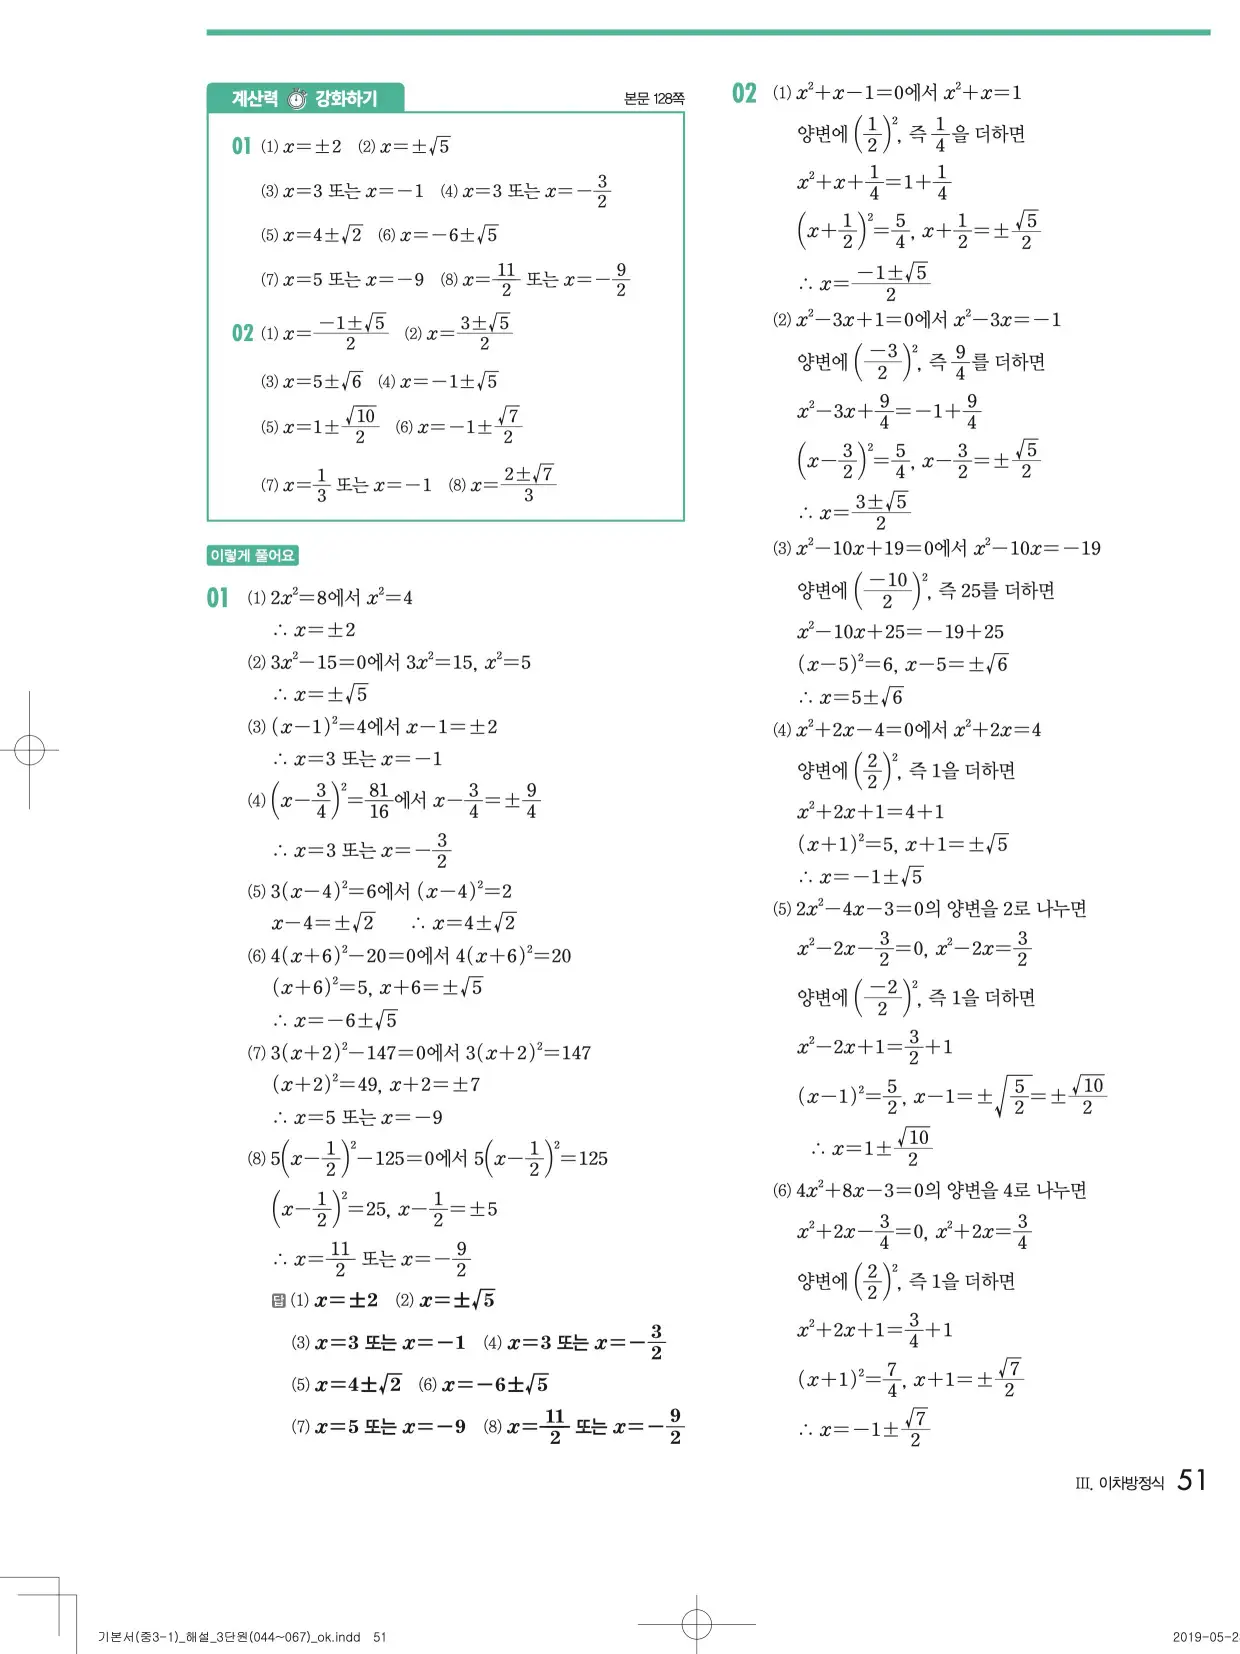 계산력 강화하기
본문 128쪽
01 (1) x=±2 (2) x=±√5
(3) x=3 또는 x=-1 (4) x=3 또는 x=-3/2
(5) x=4±√2 (6) x=-6±√5
(7) x=5 또는 x=-9 (8) x=11/2 또는 x=-9/2
02 (1) x=(-1±√5)/2 (2) x=(3±√5)/2
(3) x=5±√6 (4) x=-1±√5
(5) x=1±√10/2 (6) x=-1±√7/2
(7) x=1/3 또는 x=-1 (8) x=(2±√7)/3
이렇게 풀어요
01 (1) 2x²=8에서 x²=4
∴ x=±2
(2) 3x²-15=0에서 3x²=15, x²=5
∴ x=±√5
(3) (x-1)²=4에서 x-1=±2
∴ x=3 또는 x=-1
(4) (x-3/4)²=81/16에서 x-3/4=±9/4
∴ x=3 또는 x=-3/2
(5) 3(x-4)²=6에서 (x-4)²=2
x-4=±√2 ∴ x=4±√2
(6) 4(x+6)²-20=0에서 4(x+6)²=20
(x+6)²=5, x+6=±√5
∴ x=-6±√5
(7) 3(x+2)²-147=0에서 3(x+2)²=147
(x+2)²=49, x+2=±7
∴ x=5 또는 x=-9
(8) 5(x-1/2)²-125=0에서 5(x-1/2)²=125
(x-1/2)²=25, x-1/2=±5
∴ x=11/2 또는 x=-9/2
답 (1) x=±2 (2) x=±√5
(3) x=3 또는 x=-1 (4) x=3 또는 x=-3/2
(5) x=4±√2 (6) x=-6±√5
(7) x=5 또는 x=-9 (8) x=11/2 또는 x=-9/2
02 (1) x²+x-1=0에서 x²+x=1
양변에 (1/2)², 즉 1/4을 더하면
x²+x+1/4=1+1/4
(x+1/2)²=5/4, x+1/2=±√5/2
∴ x=(-1±√5)/2
(2) x²-3x+1=0에서 x²-3x=-1
양변에 (-3/2)², 즉 9/4를 더하면
x²-3x+9/4=-1+9/4
(x-3/2)²=5/4, x-3/2=±√5/2
∴ x=(3±√5)/2
(3) x²-10x+19=0에서 x²-10x=-19
양변에 (-10/2)², 즉 25를 더하면
x²-10x+25=-19+25
(x-5)²=6, x-5=±√6
∴ x=5±√6
(4) x²+2x-4=0에서 x²+2x=4
양변에 (2/2)², 즉 1을 더하면
x²+2x+1=4+1
(x+1)²=5, x+1=±√5
∴ x=-1±√5
(5) 2x²-4x-3=0의 양변을 2로 나누면
x²-2x-3/2=0, x²-2x=3/2
양변에 (-2/2)², 즉 1을 더하면
x²-2x+1=3/2+1
(x-1)²=5/2, x-1=±√(5/2)=±√10/2
∴ x=1±√10/2
(6) 4x²+8x-3=0의 양변을 4로 나누면
x²+2x-3/4=0, x²+2x=3/4
양변에 (2/2)², 즉 1을 더하면
x²+2x+1=3/4+1
(x+1)²=7/4, x+1=±√7/2
∴ x=-1±√7/2
Ⅲ. 이차방정식 51
기본서(중3-1)_해설_3단원(044~067)_ok.indd 51
2019-05-2